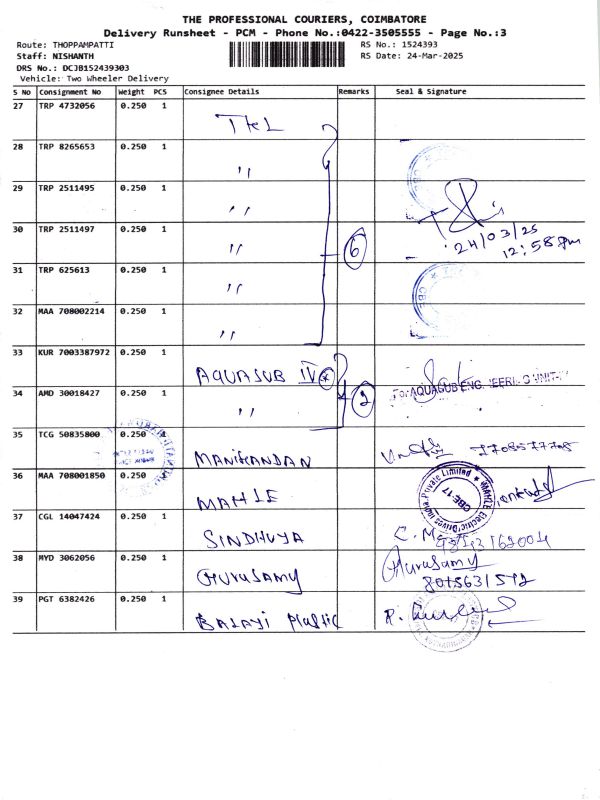 THE PROFESSIONAL COURIERS, COIMBATORE
Delivery Runsheet - PCM - Phone No.:0422-3505555 - Page No.:3
Route: THOPPAMPATTI
RS No.: 1524393
Staff: NISHANTH
RS Date: 24-Mar-2025
DRS No.: DCJB152439303
Vehicle: Two Wheeler Delivery
S No Consignment No Weight PCS Consignee Details Remarks Seal & Signature
27 TRP 4732056 0.250 1
28 TRP 8265653 0.250 1 "
29 TRP 2511495 0.250 1 "
30 TRP 2511497 0.250 1 " 6 24/03/25
12:58 pm
31 TRP 625613 0.250 1 "
CBE
32 MAA 708002214 0.250 1 "
33 KUR 7003387972 0.250 1 AQUASUB IV
34 AMD 30018427 0.250 1 " 2 For AQUASUB ENG
35 TCG 50835800 0.250 1 MANIKANDAN
36 MAA 708001850 0.250 MAHLE
MAHLE Electric Drives India Private Limited
CBE-17
37 CGL 14047424 0.250 1 SINDHUYA
38 MYD 3062056 0.250 1 Gurusamy Gurusamy
39 PGT 6382426 0.250 1 BALAJI Plastic